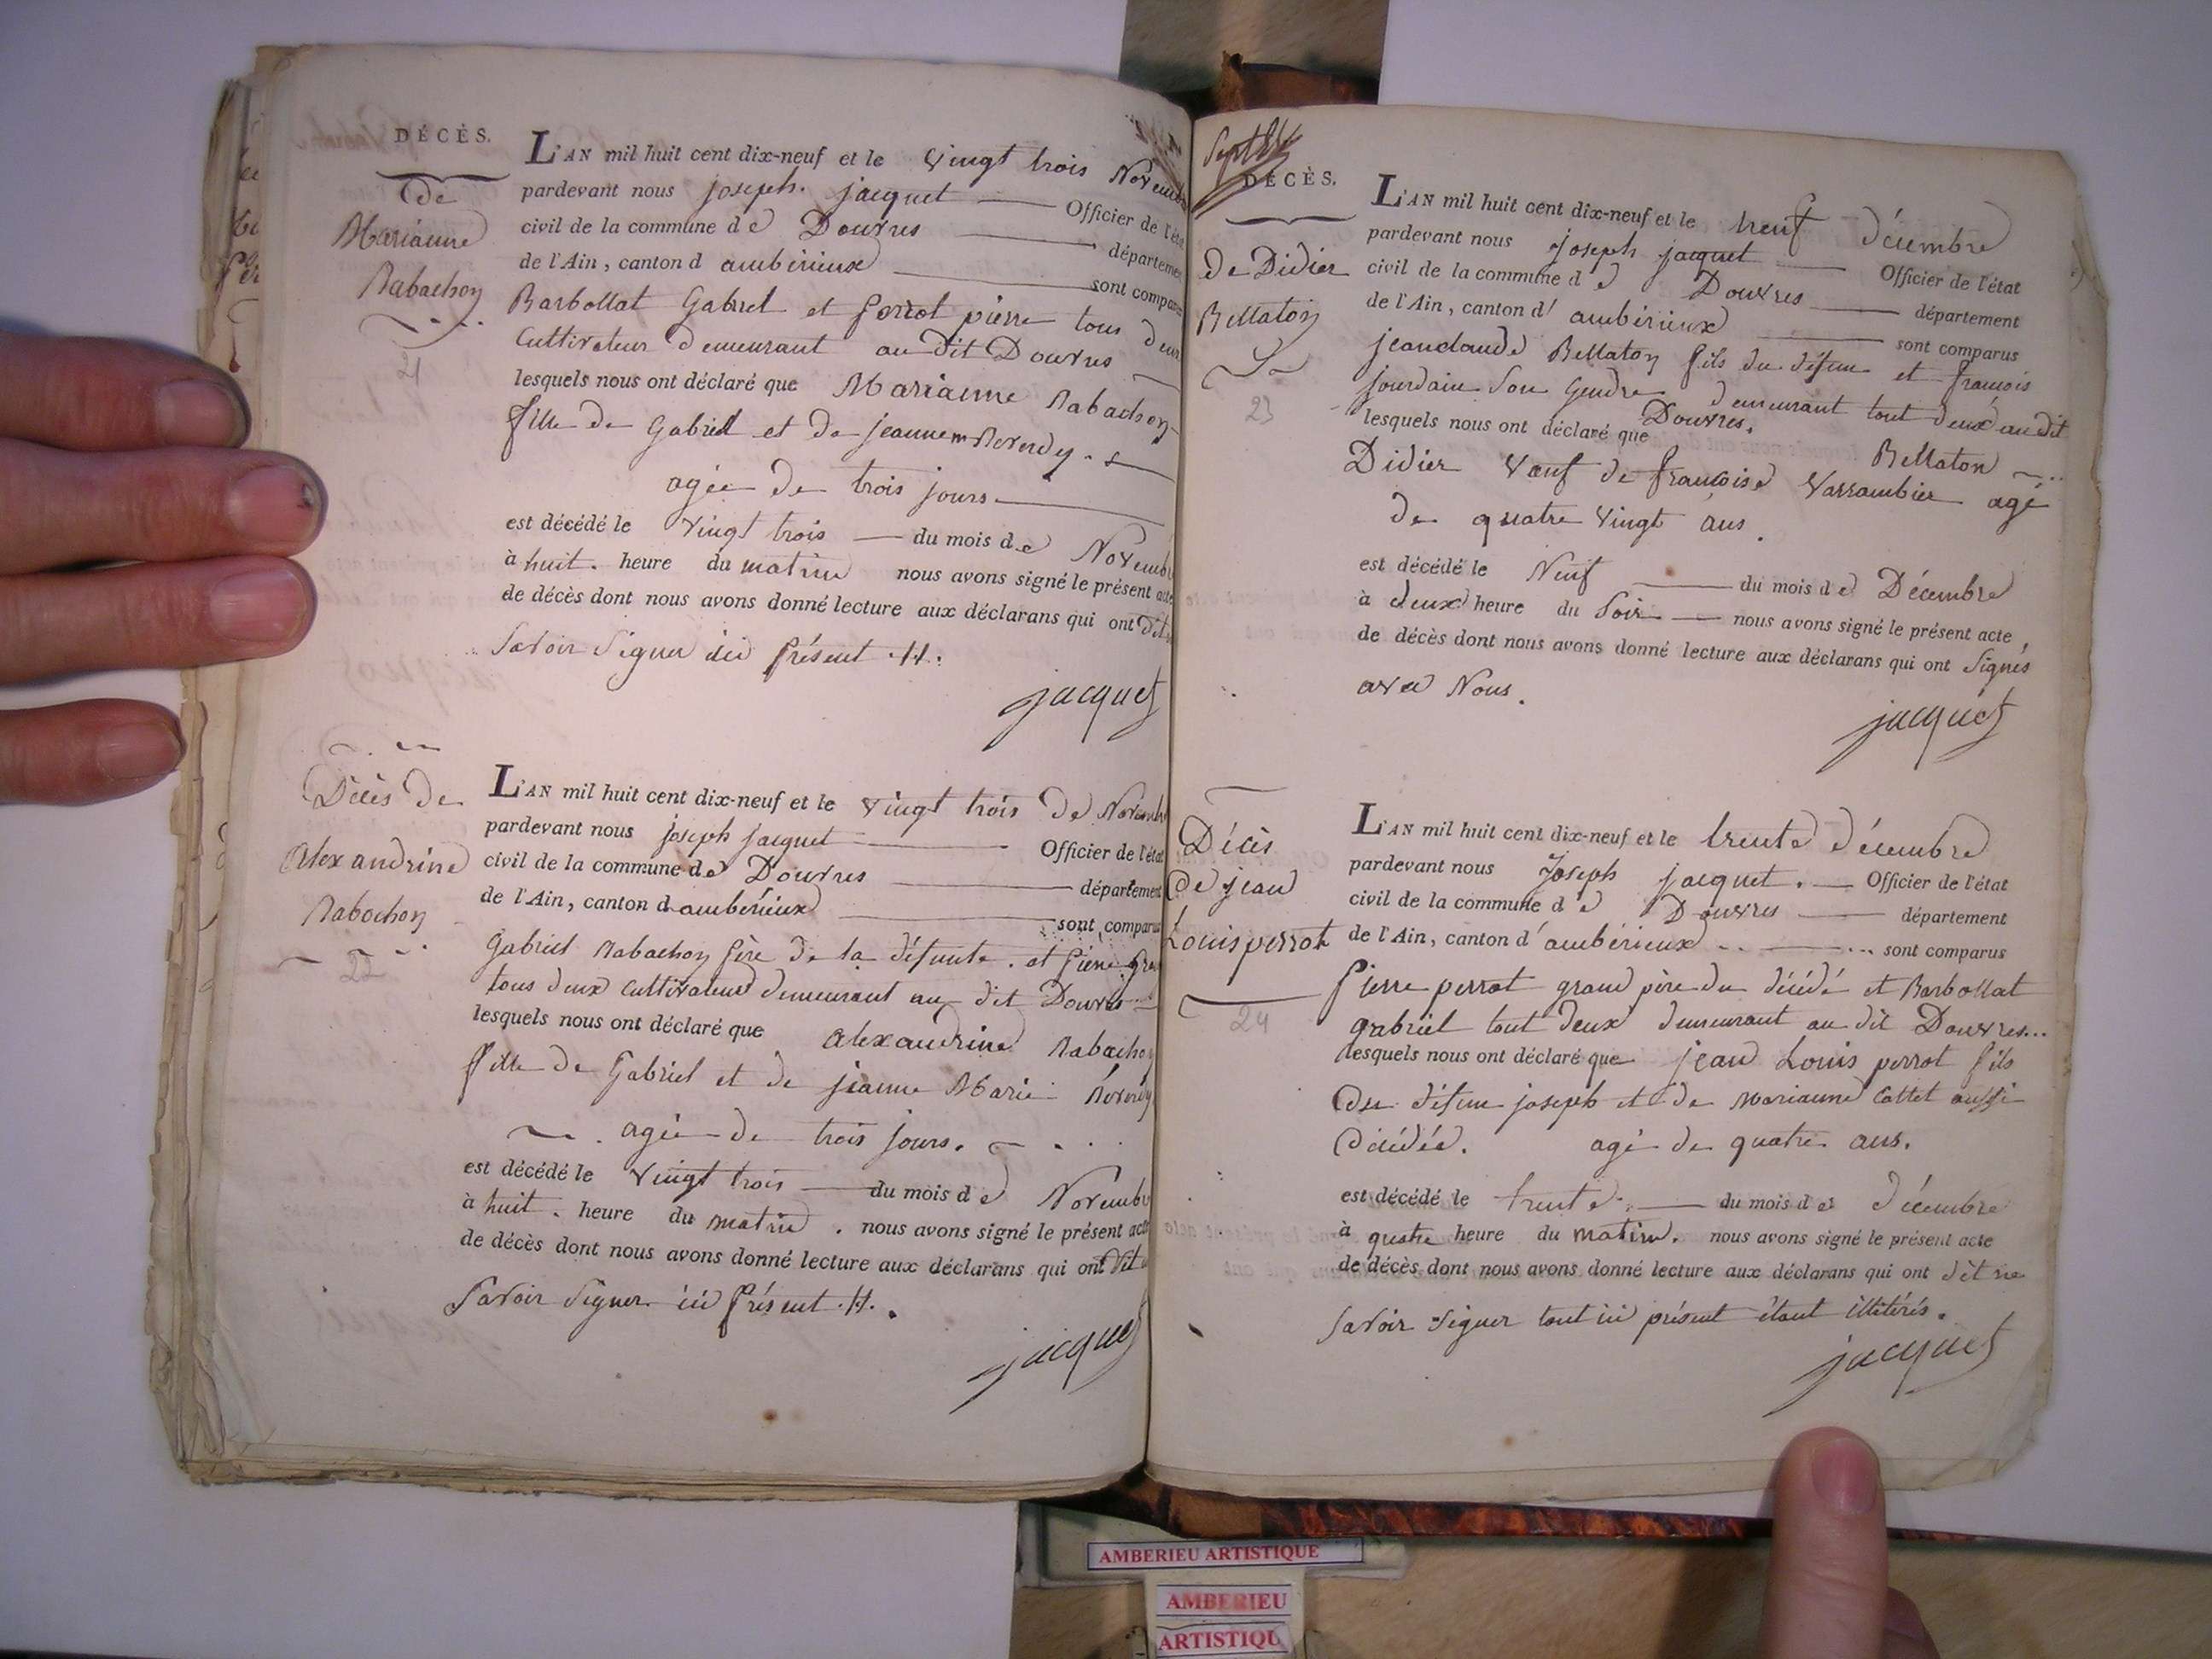 DÉCÈS.
de
Marianne
Rabachon
21
L'AN mil huit cent dix-neuf et le vingt trois Novemb
pardevant nous joseph. jacquet Officier de l'état
civil de la commune de Douvres département
de l'Ain, canton d ambérieux sont comparus
Barbollat Gabriel et perrot pierre tous deux
Cultivateur Demeurant au dit Douvres
lesquels nous ont déclaré que Marianne Rabachon
fille de Gabriel et de jeannem Reverdy.
agée de trois jours
est décédé le vingt trois du mois de Novemb
à huit. heure du matin nous avons signé le présent acte
de décès dont nous avons donné lecture aux déclarans qui ont dit
Savoir Signer ici présent
jacquet
Décès de
Alexandrine
Rabachon
22
L'AN mil huit cent dix-neuf et le vingt trois de Novemb
pardevant nous joseph jacquet Officier de l'état
civil de la commune de Douvres département
de l'Ain, canton d ambérieux sont comparus
Gabriel Rabachon père de la défunte. et pierre
tous deux cultivateurs demeurant au dit Douvres
lesquels nous ont déclaré que Alexandrine Rabachon
fille de Gabriel et de jeanne Marie Reverdy
agée de trois jours.
est décédé le vingt trois du mois de Novemb
à huit. heure du matin. nous avons signé le présent acte
de décès dont nous avons donné lecture aux déclarans qui ont dit
Savoir Signer ici présent
jacquet
DÉCÈS.
de Didier
Bellaton
23
L'AN mil huit cent dix-neuf et le neuf décembre
pardevant nous joseph jacquet Officier de l'état
civil de la commune de Douvres département
de l'Ain, canton d'ambérieux sont comparus
jeanclaude Bellaton fils du défun et francois
jourdain Son Gendre demeurant tout deux au dit
Douvres.
lesquels nous ont déclaré que Bellaton
Didier Vauf de francoise Varrambier agé
de quatre Vingt ans.
est décédé le Neuf du mois de Décembre
à deux heure du Soir nous avons signé le présent acte
de décès dont nous avons donné lecture aux déclarans qui ont Signés
avec Nous.
jacquet
Décès
de jean
Louis perrot
24
L'AN mil huit cent dix-neuf et le trente décembre
pardevant nous Joseph jacquet. Officier de l'état
civil de la commune de Douvres département
de l'Ain, canton d'ambérieux sont comparus
Pierre perrot grand père du décédé et Barbollat
gabriel tout deux demeurant au dit Douvres...
lesquels nous ont déclaré que jean Louis perrot fils
du défun joseph et de Marianne Cottet aussi
décédée. agé de quatre ans.
est décédé le trente du mois de décembre
à quatre heure du matin. nous avons signé le présent acte
de décès dont nous avons donné lecture aux déclarans qui ont dit ne
Savoir Signer tout ici présent étant illitérés.
jacquet
AMBERIEU ARTISTIQUE
AMBERIEU
ARTISTIQU